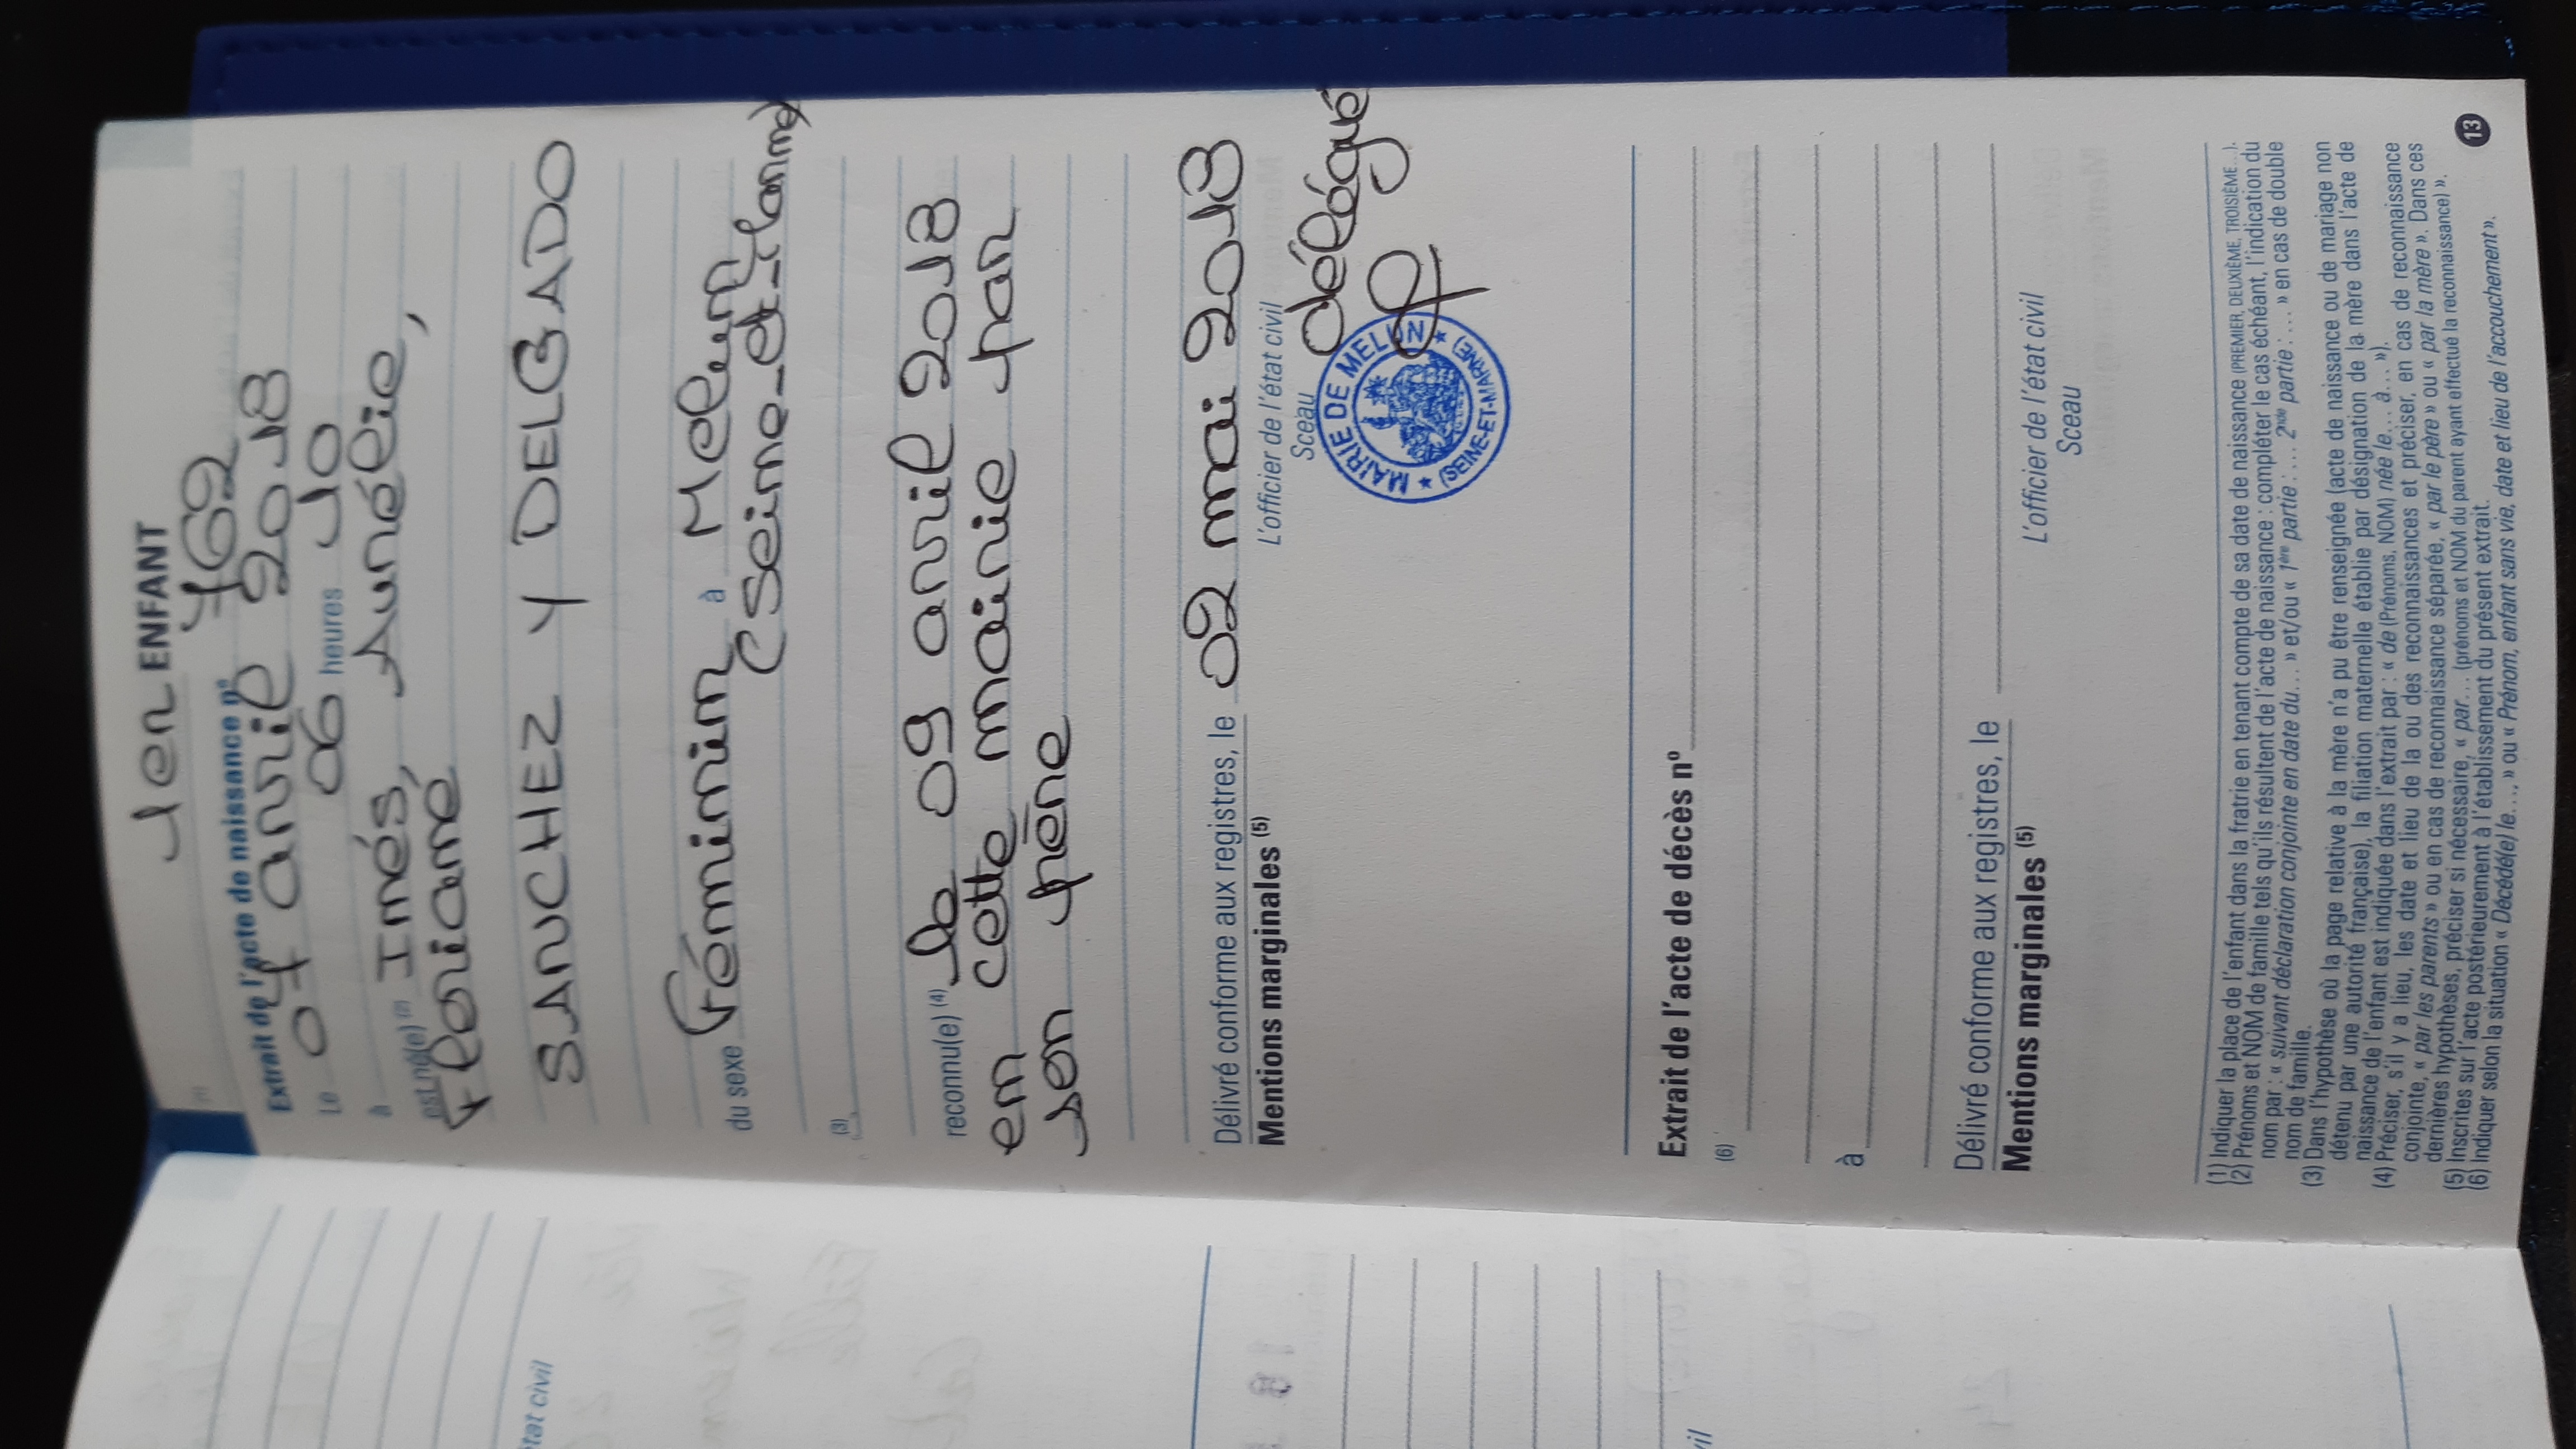 1er ENFANT
Extrait de l'acte de naissance n° 762
Le 07 avril 2018
à 06 heures 10
est né(e) (2) Inés, Aurélie,
Floriane
SANCHEZ Y DELGADO
du sexe Féminin à Melun
(Seine-et-Marne)
(3)
reconnu(e) (4) le 09 avril 2018
en cette mairie par
son père
Délivré conforme aux registres, le 02 mai 2018
Mentions marginales (5)
L'officier de l'état civil
délégué
Sceau
MAIRIE DE MELUN
(SEINE-ET-MARNE)
Extrait de l'acte de décès n°
(6)
à
Délivré conforme aux registres, le
Mentions marginales (5)
L'officier de l'état civil
Sceau
(1) Indiquer la place de l'enfant dans la fratrie en tenant compte de sa date de naissance (PREMIER, DEUXIÈME, TROISIÈME…).
(2) Prénoms et NOM de famille tels qu'ils résultent de l'acte de naissance : compléter le cas échéant, l'indication du
nom par : « suivant déclaration conjointe en date du… » et/ou « 1ère partie : … 2nde partie : … » en cas de double
nom de famille.
(3) Dans l'hypothèse où la page relative à la mère n'a pu être renseignée (acte de naissance ou de mariage non
détenu par une autorité française), la filiation maternelle établie par désignation de la mère dans l'acte de
naissance de l'enfant est indiquée dans l'extrait par : « de (Prénoms, NOM) née le… à… »).
(4) Préciser, s'il y a lieu, les date et lieu de la ou des reconnaissances et préciser, en cas de reconnaissance
conjointe, « par les parents » ou en cas de reconnaissance séparée, « par le père » ou « par la mère ». Dans ces
dernières hypothèses, préciser si nécessaire, « par… (prénoms et NOM du parent ayant effectué la reconnaissance) ».
(5) Inscrites sur l'acte postérieurement à l'établissement du présent extrait.
(6) Indiquer selon la situation « Décédé(e) le… » ou « Prénom, enfant sans vie, date et lieu de l'accouchement ».
13
état civil